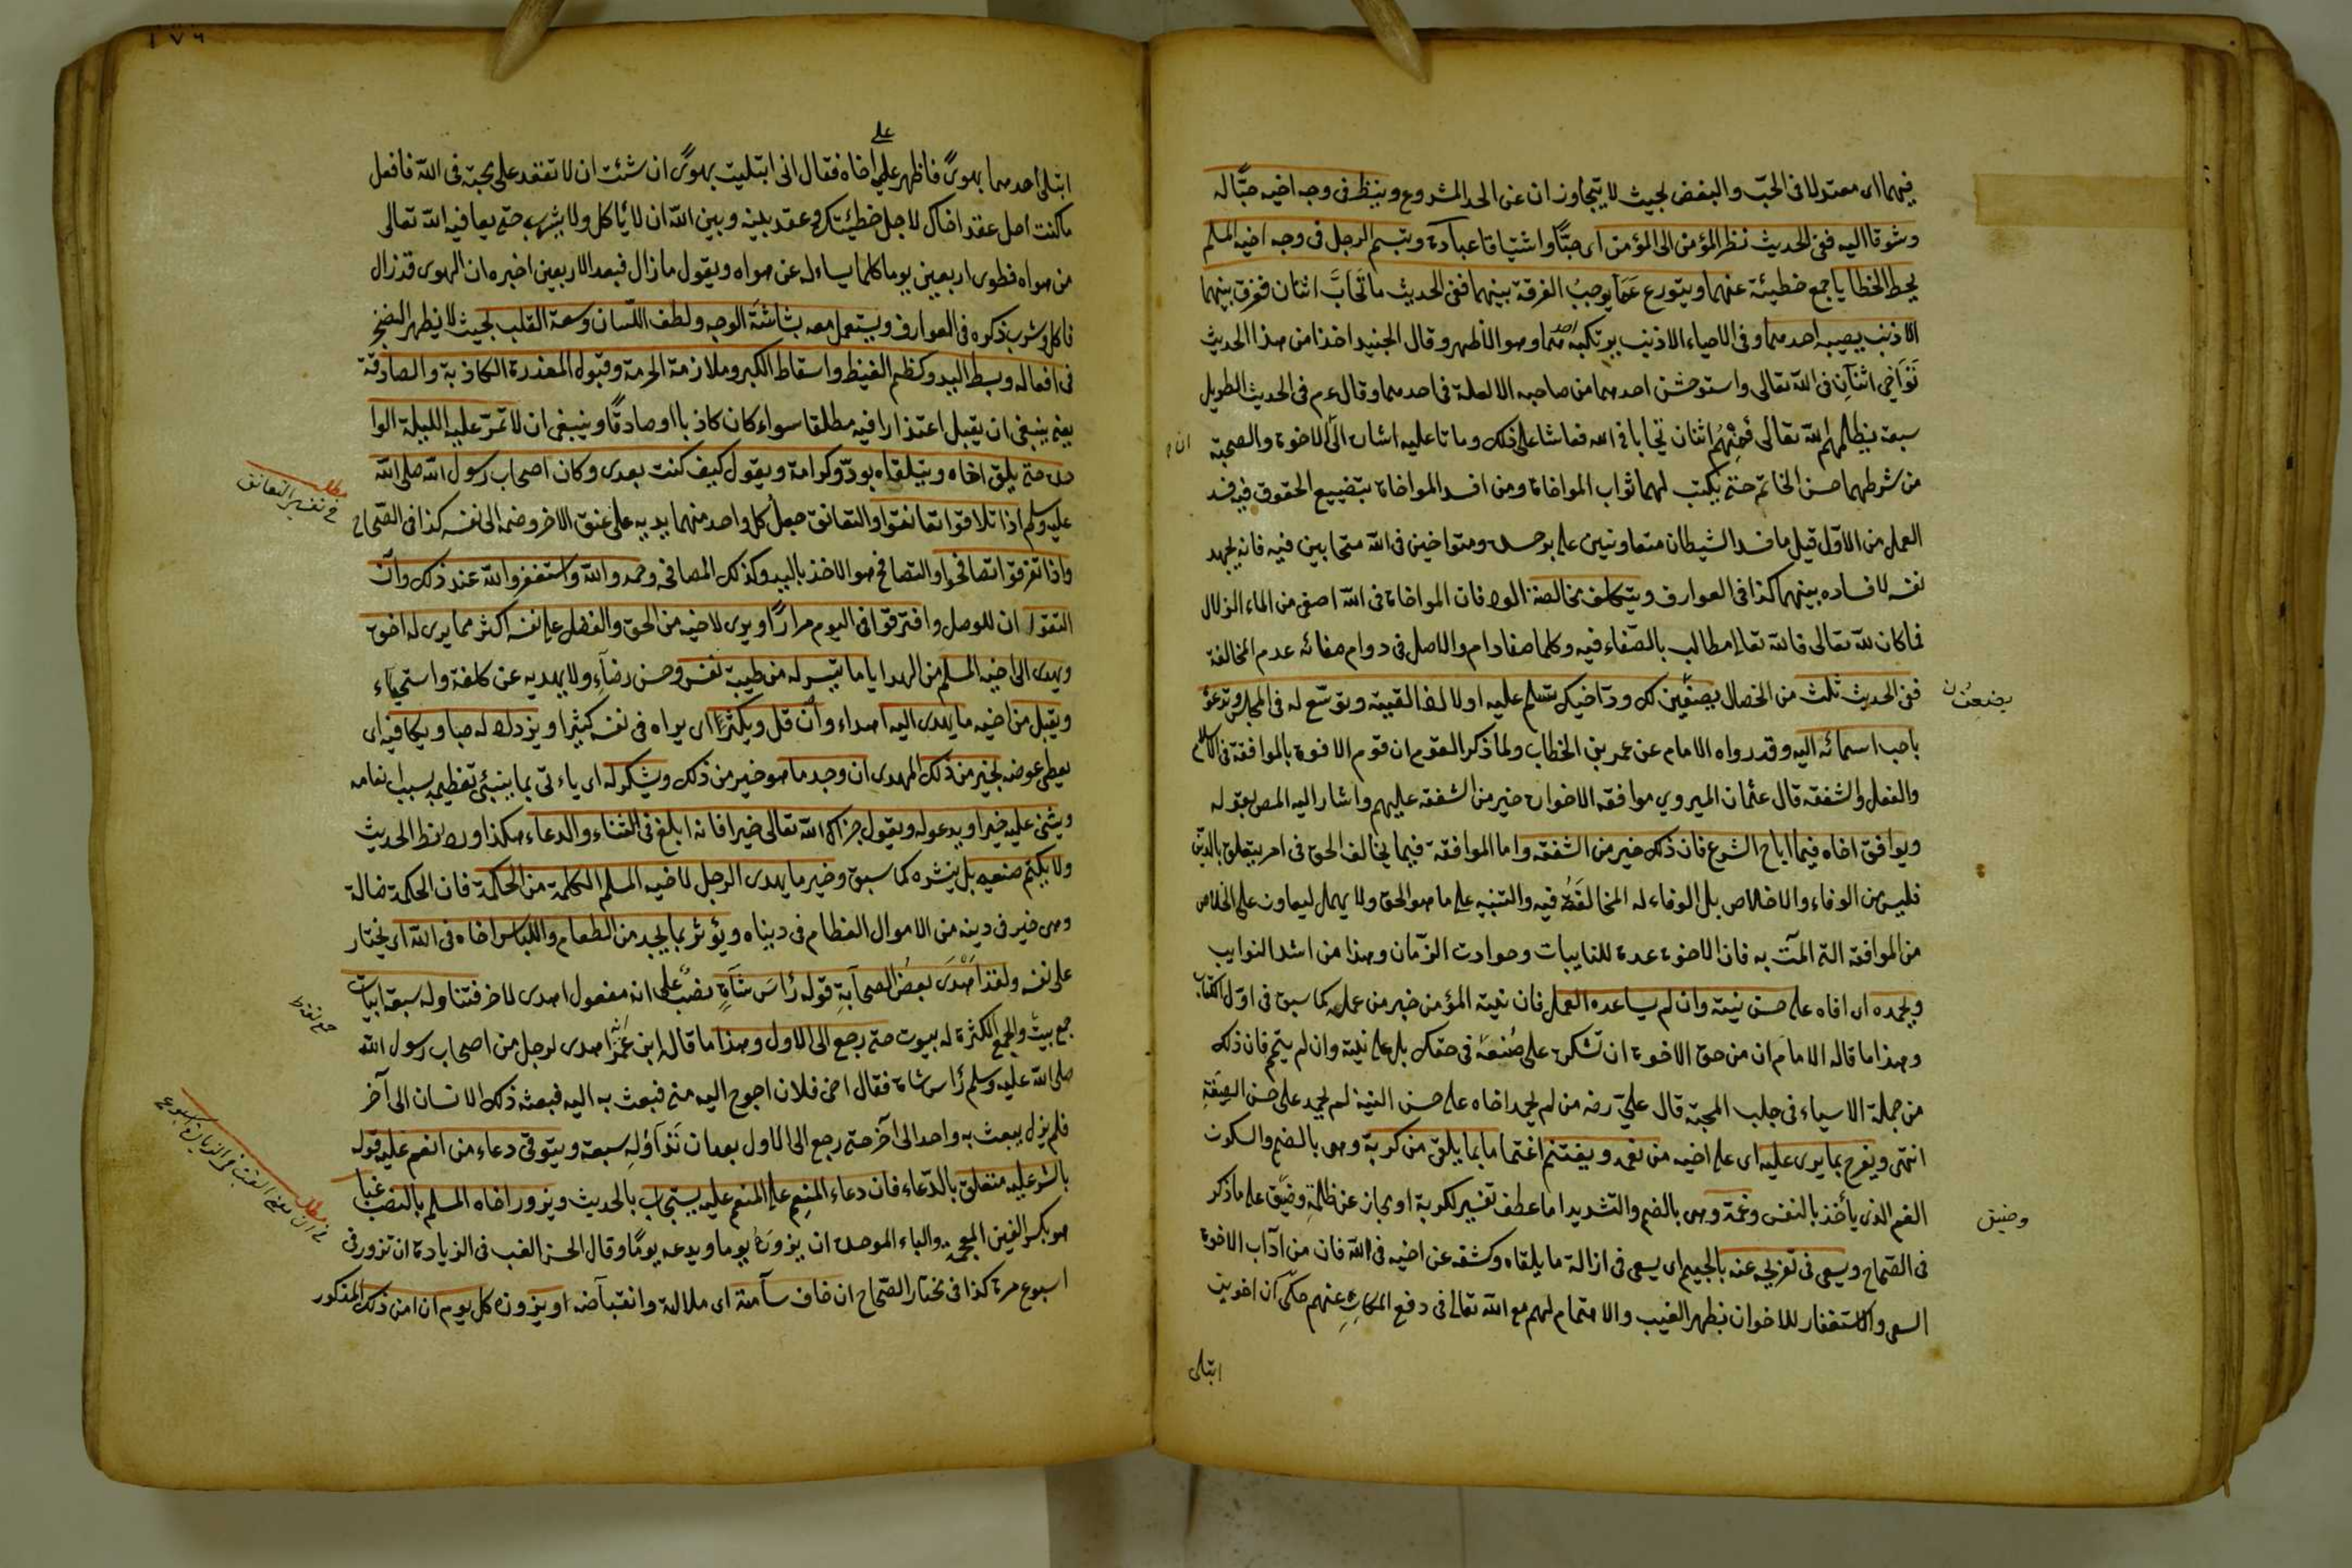 فيهما اى معتدلا فى الحبّ والبغض بحيث لا يتجاوزان عن الحد المشروع وينظر فى وجه اخيه حبًّا له
وشوقا اليه ففى الحديث نظر المؤمن الى المؤمن اى حبًّا واشتياقا عبادة وتبسم الرجل فى وجه اخيه المسلم
يحط الخطايا جمع خطيئة عنهما ويتورع عَمّا يوجبُ الفرقة بينهما ففى الحديث ما تَحَابَّ اثنان ففرق بينهما
الا ذنب يصيبه احدهما وفى الاحياء الا ذنب يرتكبه احدهما وهو الاظهر وقال الجنيد اخذا من هذا الحديث
تَوَاخى اثنان فى الله تعالى واستوحش احدهما من صاحبه الا لعلة فى احدهما وقال ءم فى الحديث الطويل
سبعة يظلهم الله تعالى فَمِنْهُم اثنان تحابا فى الله فعاشا على ذلك وماتا عليه اشارة الى ان الاخوة والصحبة
من شرطهما حسن الخاتمة حتى يكتب لهما ثواب المواخاة ومن افسد المواخاة بتضييع الحقوق فيه فسد
العمل من الاوّل قيل ما فسد الشيطان متعاونين على بر حسده ومتواخين فى الله متحابين فيه فانه يجهد
نفسه لافساده بينهما كذا فى العوارف ويتكلف مخالصة الود فان المواخاة فى الله اصفى من الماء الزلال
فما كان لله تعالى فالله تعالى مطالب بالصّفاء فيه وكلما صفا دام والاصل فى دوام صفائه عدم المخالفة
ففى الحديث ثلث من الخصال يصفين لك ودّ اخيك تسلم عليه اولا اذا لقيته وتوسّع له فى المجلس وتدعوه
باحب اسمائه اليه وقد رواه الامام عن عمر بن الخطاب ولما ذكر القوم ان قوم الاخوة بالموافقة فى الكلام
والفعل والشفقة قال عثمان الحيروي موافقة الاخوان خير من الشفقة عليهم واشار اليه المص بقوله
ويوافق اخاه فيما اباح الشرع فان ذلك خير من الشفقة واما الموافقة فيما يخالف الحق فى امر يتعلق بالدين
فليس من الوفاء والاخلاص بل الوفاء له المخالفَةُ فيه والتنبيه على ما هو الحق ولا يهمل ليعاون على الخلاص
من الموافقة التى المّت به فان الاخوة عدة للنايبات وحوادث الزّمان وهذا من اشد النوايب
ويحمده اى اخاه على حسن نيته وان لم يساعده العمل فان نية المؤمن خير من عمله كما سبق فى اوّل الكتاب
وهذا ما قاله الامام ان من حق الاخوة ان تشكره على صُنعه فى حقك بل على نيته وان لم يتم فان ذلك
من جملة الاسباء فى جلب المحبّة قال عليّ رضه من لم يحمد اخاه على حسن النية لم يحمد على حسن الصِنعَةِ
انتهى ويفرح بما يرى عليه اى على اخيه من نعمه ويغتنم اغتماما بما يلقى من كربة وهى بالضم والسكون
الغم الذى يأخذ بالنفس وغمة وهى بالضم والتشديد اما عطف تفسير لكربة او مجاز عن ظلمةٍ وضيق على ما ذكر
فى الصّحاح ويسعى فى تفريجه عنه بالجيم اى يسعى فى ازالة ما يلقاه وكشفه عن اخيه فى الله فان من آداب الاخوة
السعى والاستغفار للاخوان بظهر الغيب والاهتمام لهم مع الله تعالى فى دفع المكارِهِ عنهم حكى ان اخوين
ابتلى
ان
وضيق
١٧٦
على
ابتلى احدهما بهوىً فاظهر عليه اخاه فقال انى ابتليت بهوىً ان شئت ان لا تعقد على محبة فى الله فافعل
ما كنت احل عقد اخاك لاجل خطيئتك وعقد بينه وبين الله ان لا يأكل ولا يشرب حتى يعافيه الله تعالى
من هواه فطوى اربعين يوما كلما يساءله عن هواه ويقول ما زال فبعد الاربعين اخبره ان الهوى قد زال
فاكل وشرب ذكره فى العوارف ويستعمل معه بشاشة الوجه ولطف اللّسان وسعة القلب بحيث لا يظهر الضجر
فى افعاله وبسط اليد وكظم الغيظ واسقاط الكبر وملازمة الحرمة وقبول المعذرة الكاذبة والصادقة
يعنى ينبغى ان يقبل اعتذار اخيه مطلقا سواء كان كاذبا او صادقًا وينبغى ان لا تمرّ عليه الليلة الوا
حدة حتى يلقى اخاه ويتلقاه بودّ وكرامة ويقول كيف كنت بعدى وكان اصحاب رسول الله صلى الله
عليه وسلم اذا تلاقوا تعانقوا والتعانق جعل كل واحد منهما يديه على عنق الاخر وضمه الى نفسه كذا فى الصّحاح
واذا تفرقوا تصافحوا والتصافح هو الاخذ باليد وكذلك المصافحة وحمدوا الله واستغفروا الله عند ذلك وان
التقوا ان للوصل وافترقوا فى اليوم مرارًا ويرى لاخيه من الحق والفضل على نفسه اكثر مما يرى له اخوه
ويهدى الى اخيه المسلم من الهدايا ما تيسر له من طيبة نفس وحسن رضاءٍ ولا يهديه عن كلفة واستحياء
ويقبل من اخيه ما يهدى اليه اهداء وان قل ويكثره اى يراه فى نفسه كثيرا ويزداد له حبا ويكافيه اى
يعطى عوضه بخير من ذلك المهدى ان وجد ما هو خير من ذلك ويشكر له اى يأتى بما ينبئ تعظيمه بسبب انعامه
ويثنى عليه خيرا ويدعوله ويقول جزاك الله تعالى خيرا فانه ابلغ فى الثناء والدعاء هكذا ورد لفظ الحديث
ولا يكتم صنعيه بل ينشره كما سبق وخير ما يهدى الرجل لاخيه المسلم الكلمة من الحكمة فان الحكمة ضالة
وهى خير فى دينه من الاموال العظام فى دنياه ويؤثر بما يجد من الطعام واللباس اخاه فى الله اى يختار
على نفسه ولقد اَهْدَى بعضُ الصحابةِ قوله رُأسَ شاةٍ نصبٌ على انه مفعول اهدى لاخر فتناوله سبعة ابيات
جمع بيت والجمع الكثرة له بيوت حتى رجع الى الاول وهذا ما قاله ابن عمر انه اهدى لرجل من اصحاب رسول الله
صلى الله عليه وسلم رُأس شاة فقال اخى فلان احوج اليه منى فبعث به اليه فبعثه ذلك الانسان الى آخر
فلم يزل يبعث به واحد الى آخر حتى رجع الى الاول بعد ان تداوله سبعة ويتوقى دعاء من انعم عليه قوله
بالشر عليه متعلق بالدّعاء فان دعاء المنعِم على المنعم عليه يستجاب بالحديث ويزور اخاه المسلم بالنصب غبا
هو بكسر الغين المعجمة والباء الموحدة ان يزوره يوما ويدعه يومًا وقال الحسن الغب فى الزيادة ان تزور فى
اسبوع مرة كذا فى مختار الصّحاح ان خاف سآمة اى ملالة وانقباضه او يزوره كل يوم ان امن ذلك المذكور
مطلب
فى تفسير التعانق
مطلب